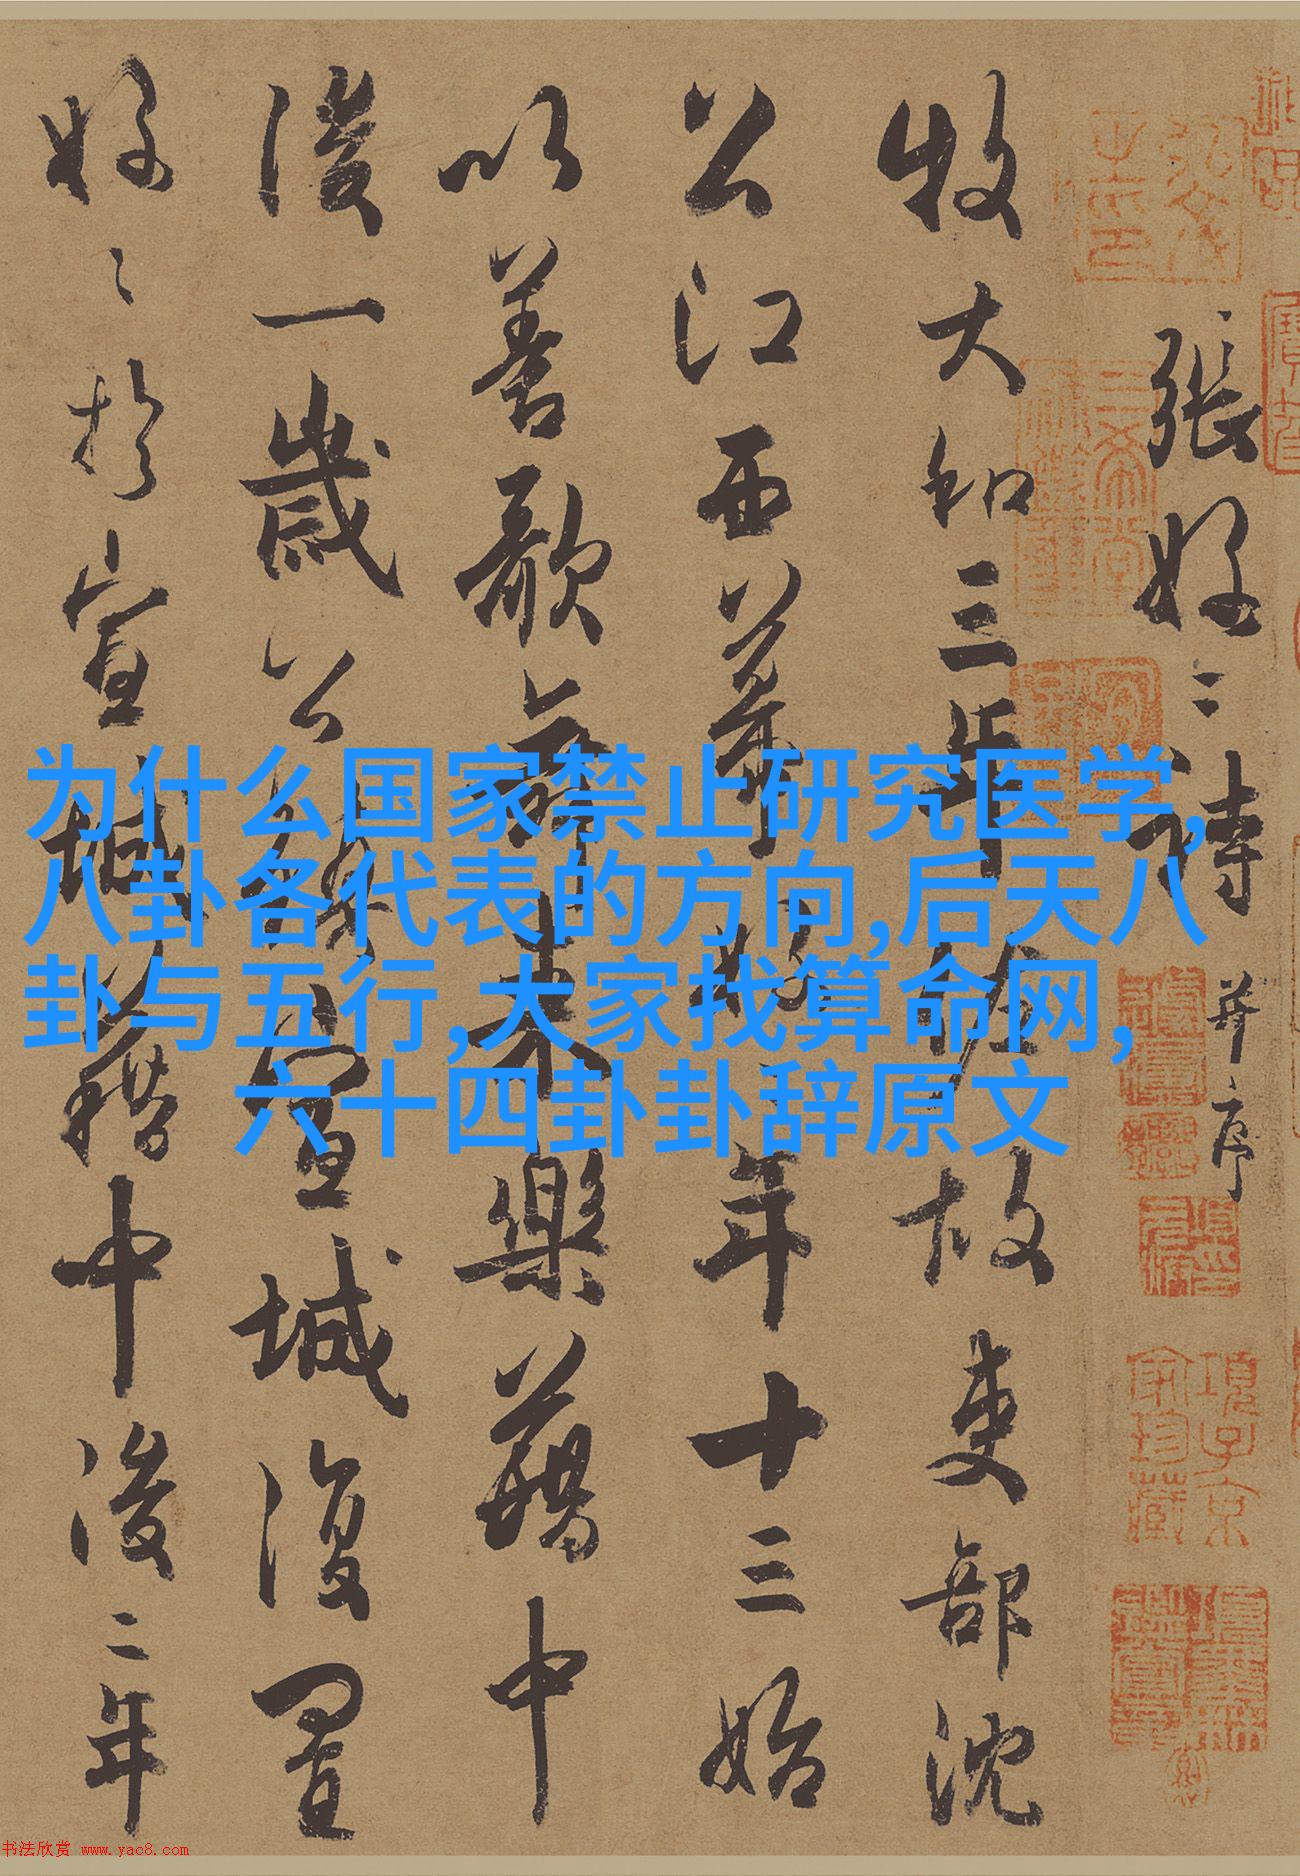 張好〻詩
并序
牧大和三年佐故吏部沈
公江西幕好〻年十三始
以善歌舞來樂籍中
後一歲公鎮宣城復置
好〻於宣城籍中後二年
为什么国家禁止研究医学,
八卦各代表的方向,后天八
卦与五行,大家找算命网,
六十四卦卦辞原文
书法欣赏 www.yac8.com